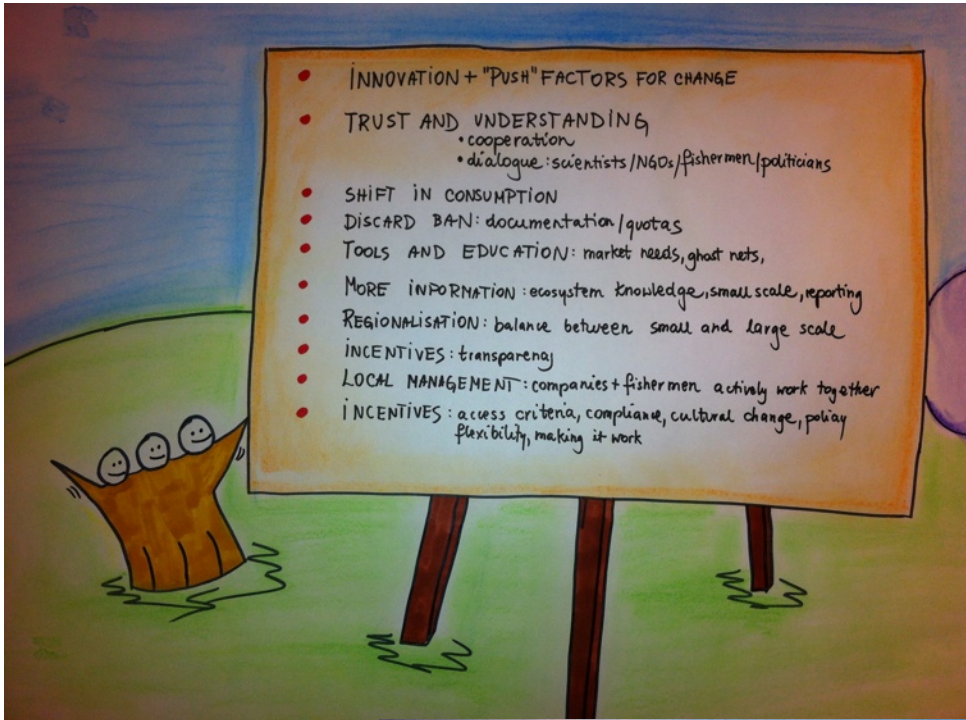 • INNOVATION + "PUSH" FACTORS FOR CHANGE
• TRUST AND UNDERSTANDING
• cooperation
• dialogue: scientists/NGOs/fishermen/politicians
• SHIFT IN CONSUMPTION
• DISCARD BAN: documentation/quotas
• TOOLS AND EDUCATION: market needs, ghost nets,
• MORE INFORMATION: ecosystem knowledge, small scale, reporting
• REGIONALISATION: balance between small and large scale
• INCENTIVES: transparency
• LOCAL MANAGEMENT: companies + fishermen actively work together
• INCENTIVES: access criteria, compliance, cultural change, policy
flexibility, making it work